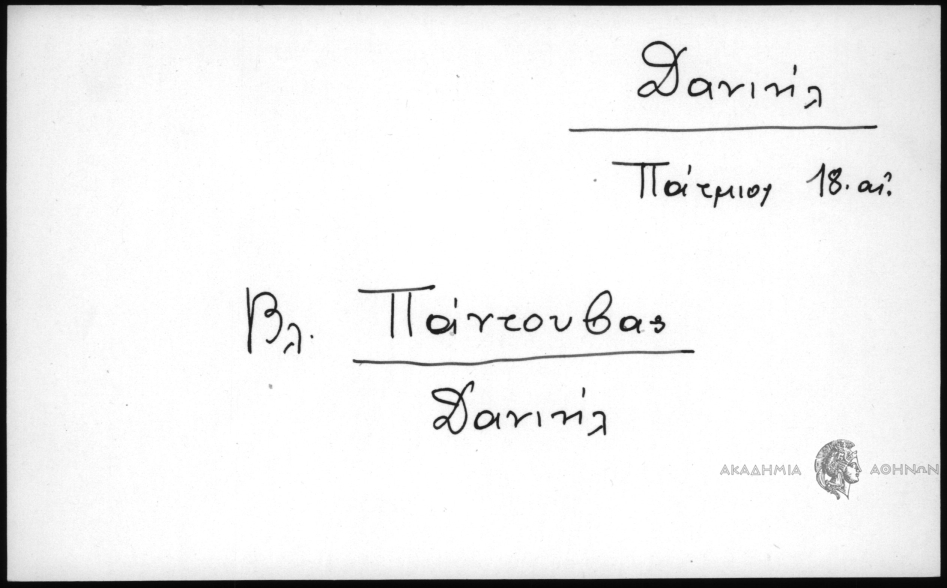 Δανιήλ
Πάτμιος 18. αἰ.
Βλ. Πάντουβας
Δανιήλ
ΑΚΑΔΗΜΙΑ ΑΘΗΝΩΝ